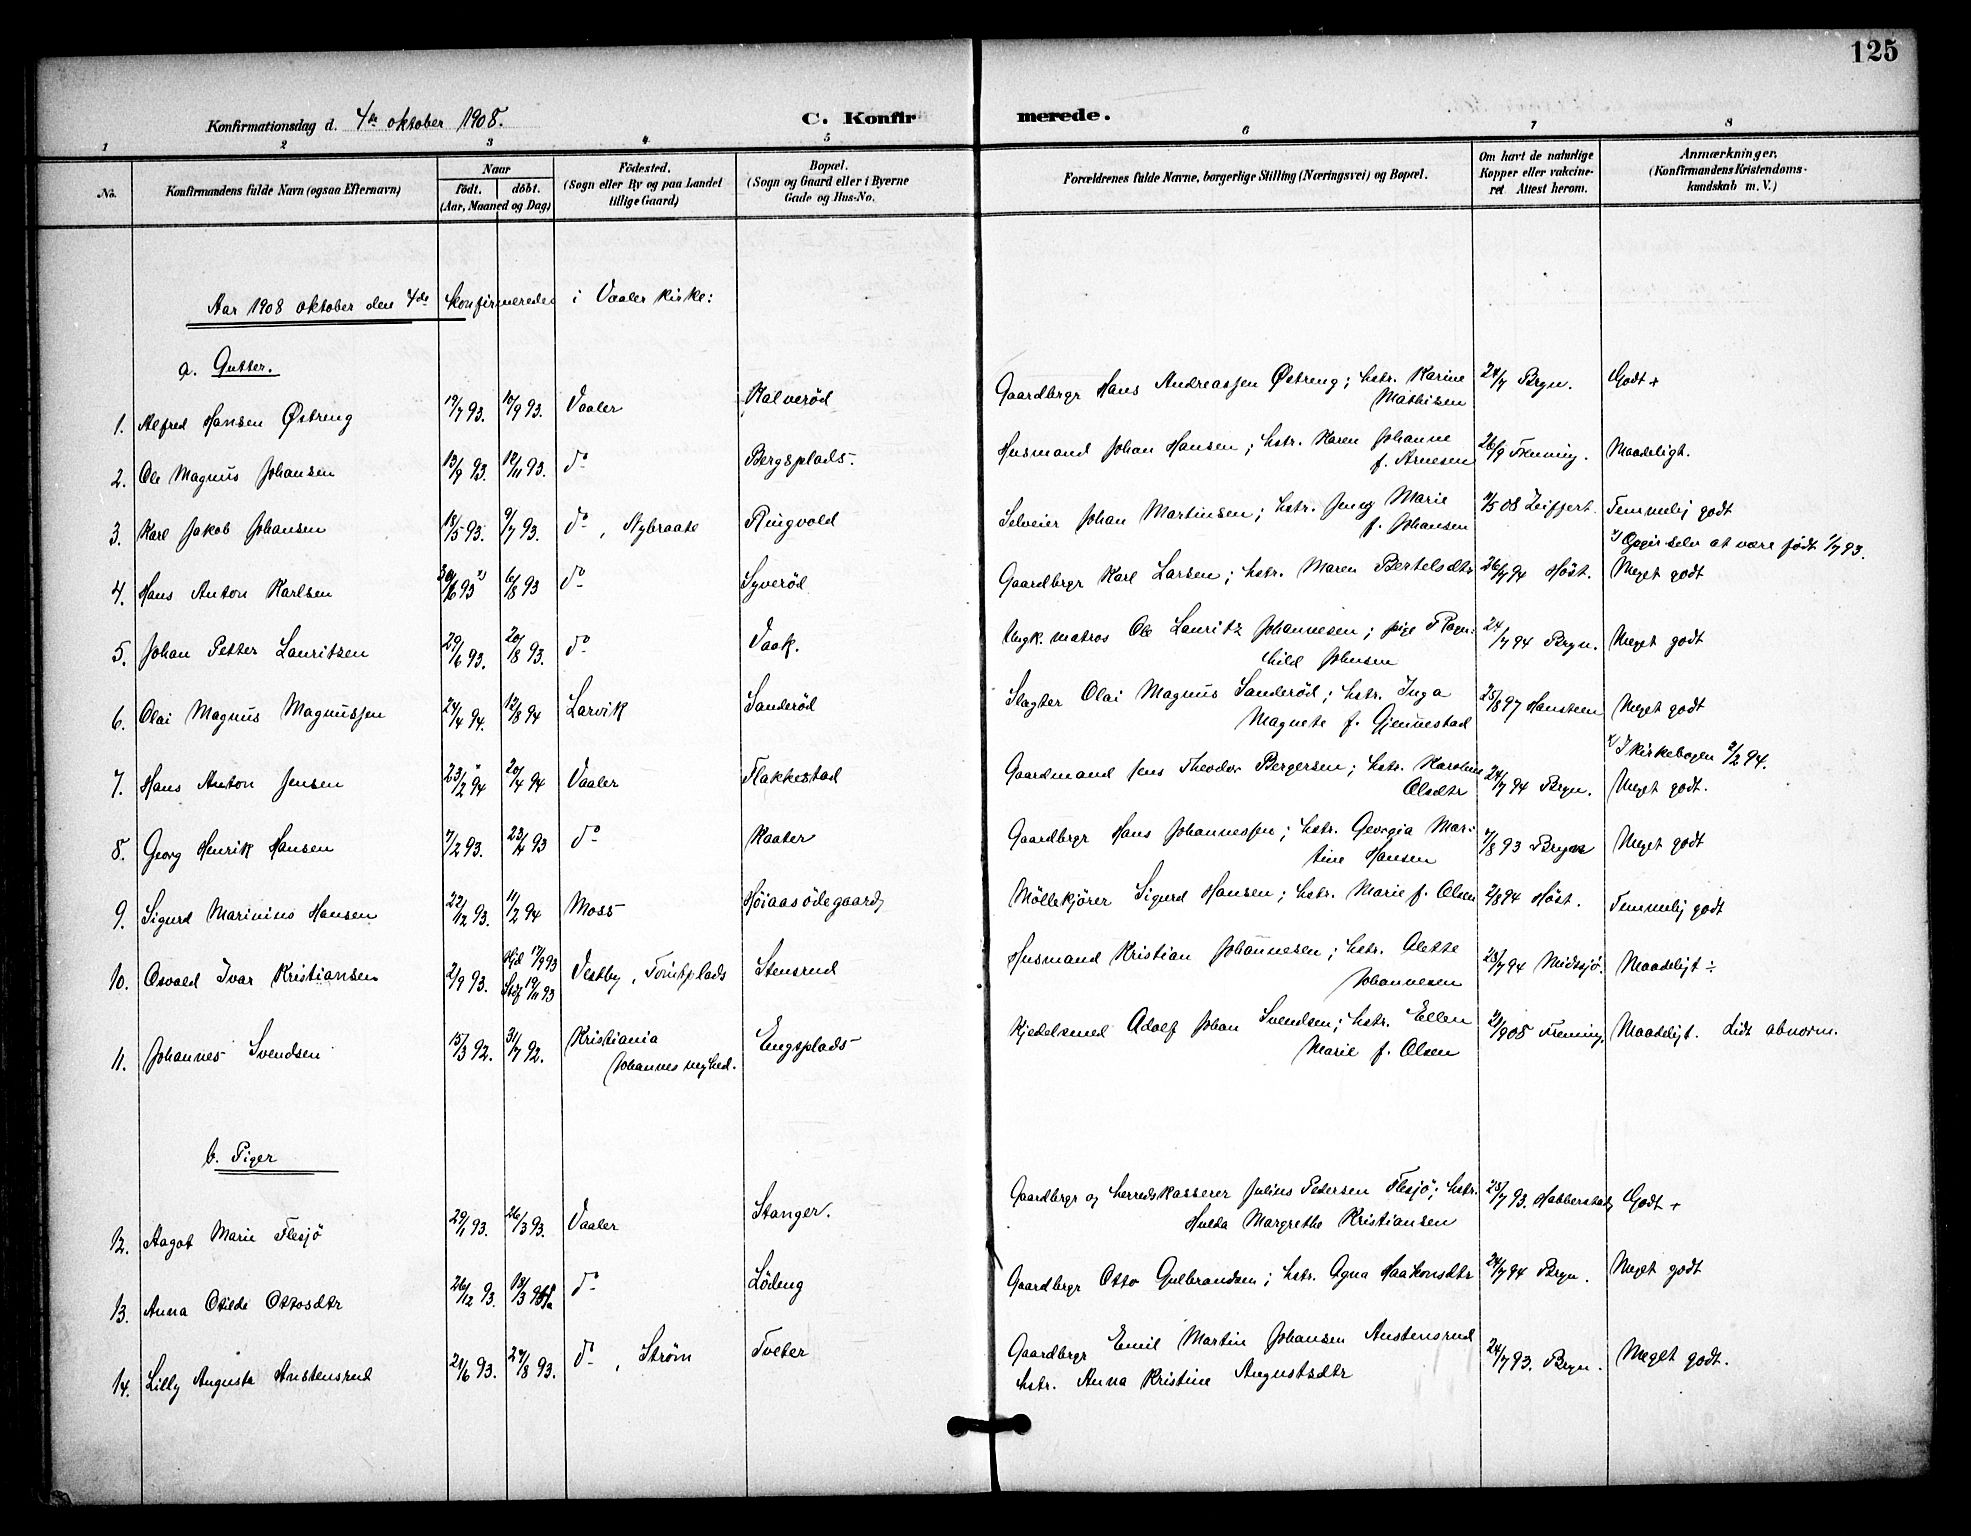 125
Konfirmationsdag d. 4de oktober 1908.
C. Konfirmerede.
1 2 3 4 5 6 7 8
No.
Konfirmandens fulde Navn (ogsaa Efternavn)
Naar
födt. döbt.
(Aar, Maaned og Dag)
Födested.
(Sogn eller By og paa Landet
tillige Gaard)
Bopæl.
(Sogn og Gaard eller i Byerne
Gade og Hus-No.
Forældrenes fulde Navne, borgerlige Stilling (Næringsvei) og Bopæl.
Om havt de naturlige
Kopper eller vakcine-
ret Attest herom.
Anmærkninger.
(Konfirmandens Kristendoms-
kundskab m. V.)
Aar 1908 oktober den 4de konfirmeredes i Vaaler kirke:
a. Gutter.
1. Alfred Hansen Østreng 19/7 93. 10/9 93. Vaaler Kalverød Gaardbrgr Hans Andreassen Østreng; hstr. Karine 24/7 Bryn. Godt +
Mathisen
2. Ole Magnus Johansen 13/9 93. 12/11 93. do Bergsplads. Husmand Johan Hansen; hstr. Karen Johanne 26/9 Frenning. Maadeligt.
f. Arnesen
3. Karl Jakob Johansen 18/5 93. 9/7 93. do, Nybraate Ringvold Selveier Johan Martinsen; hstr. Jeny Marie /5 08 Leiffert. Temmelig godt
f. Johansen
x) Opgir selv at være født 1/7 93.
4. Hans Anton Karlsen 30/6 93 x) 6/8 93 do Syverød Gaardbrgr Karl Larsen; hstr. Maren Bertelsdtr 26/7 94 Höst. Meget godt
5. Johan Petter Lauritzen 29/6 93. 20/8 93. do Vaak. Ungk. matros Ole Lauritz Johannesen; pige Ragn- 24/7 94 Bryn. Meget godt
hild Johnsen
6. Olai Magnus Magnussen 24/4 94. 12/8 94 Larvik Sanderöd Slagter Olai Magnus Sanderöd; hstr. Inga 25/8 97 Hansteen Meget godt
Magnete f. Gjennestad
x) I kirkebogen 2/2 94.
7. Hans Anton Jensen 23/2 94 x 20/4 94 Vaaler Flakkestad Gaardmand Jens Theodor Bergersen; hstr. Karoline 24/7 94 Bryn. Meget godt.
Olsdtr
8. Georg Henrik Hansen 7/2 93. 23/4 93 do Kaater Gaardbrgr Hans Johannessen; hstr. Georgia Mar- /8 93 Bryn Meget godt
tine Hansen
9. Sigurd Marinius Hansen 22/12 93. 11/2 94 Moss Höiaasödegaard Möllekjörer Sigurd Hansen; hstr. Marie f. Olsen 2/8 94 Höst. Temmelig godt
10. Osvald Ivar Kristiansen 2/9 93. Hjd 17/9 93 Vestby, Tomtplads Stensrud Husmand Kristian Johannesen; hstr. Olette 23/7 94 Midtsjö. Maadeligt ÷
Stdf 19/11 93
Johannesen
11. Johannes Svendsen 15/3 92. 31/7 92. Kristiania Engsplads Kjedelsmed Adolf Johan Svendsen; hstr. Ellen /9 05 Frenning. Maadeligt. Lidt abnorm.
Johannes mghed. Marie f. Olsen
b. Piger
12. Aagot Marie Flesjö 29/1 93. 26/3 93. Vaaler Stanger. Gaardbrgr og herredskasserer Julius Petersen Flesjö; hstr. 25/7 93. Habberstad, Godt +
Hulda Margrethe Kristiansen
13. Anna Otilde Ottosdtr 26/12 93. 18/3 94 do Lödeng Gaardbrgr Otto Gulbrandsen; hstr. Agna Haakonsdtr 24/7 94 Bryn. Meget godt
14. Lilly Augusta Austensrud 21/6 93. 27/8 93. do, Ström Tveter Gaardbrgr Emil Martin Johansen Austensrud 24/7 93. Bryn. Meget godt.
hstr. Anna Kristine Augustsdtr